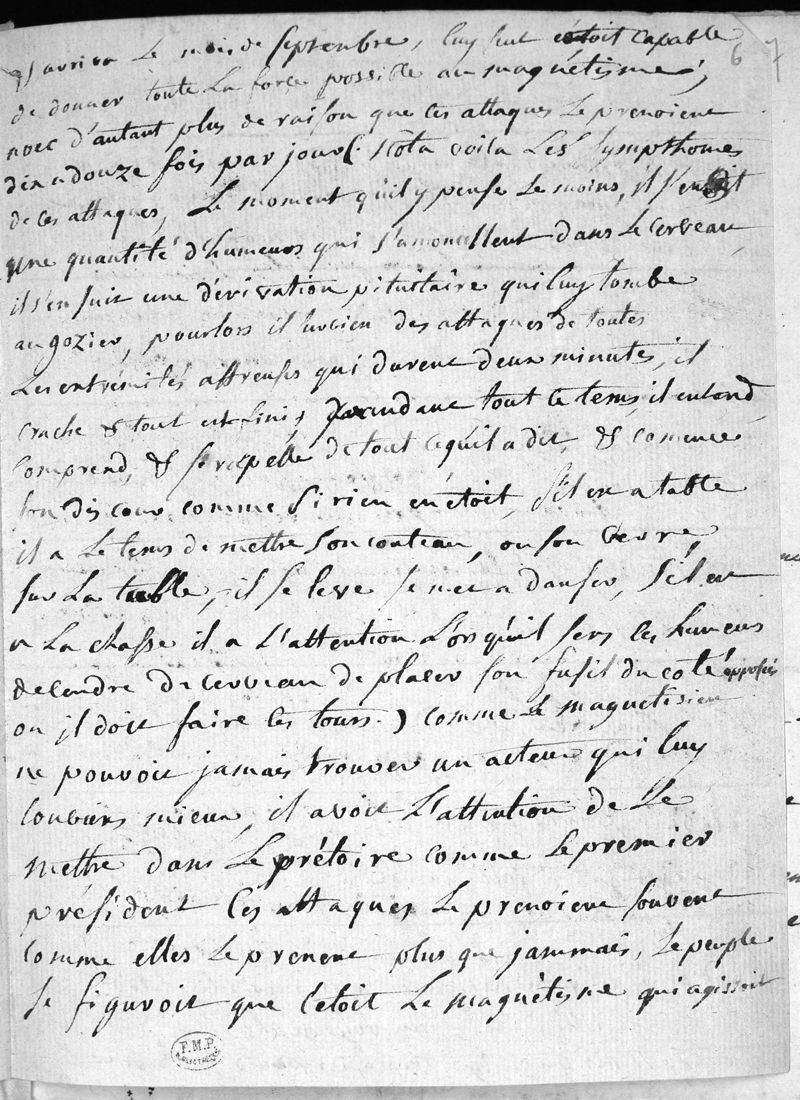 & arriva Le mois de Septembre, luy seul étoit capable
de donner toute La force possible au magnétisme,
avec d'autant plus de raison que ces attaques Le prenoient
dix a douze fois par jour (Nota voila Les Sympthomes
de ces attaques, Le moment qu'il y pense Le moins, il s'ensuit
une quantité d'humeurs qui s'amoncellent dans Le Cerveau
il s'en suit une dérivation pituitaire qui luy tombe
au gozier, pour lors il survien des attaques de toutes
Les extrémités affreuses qui durent deux minutes, il
crache & tout est finis, pendant tout ce tems, il entend
comprend, & se rapelle de tout ce qu'il a dit, & comence
son discour comme si rien en étoit, s'il est a table
il a Le tems de mettre son couteau, ou son verre,
sur La table, il se leve se met a danser, s'il est
a La chasse il a L'attention Lorsqu'il sens ces humeurs
decendre de cerveau de placer son fusil du coté opposés
ou il doit faire ces tours.) comme Le magnetisme
ne pouvoit jamais trouver un acteur qui luy
convins mieux, il avoit L'attention de Le
mettre dans Le prétoire comme Le premier
président Ces attaques Le prenoient souvent
comme elles Le prenent plus que jammais, Le peuple
se figuroit que c'étoit Le magnétisme qui agissoit
6 7
F.M.P.